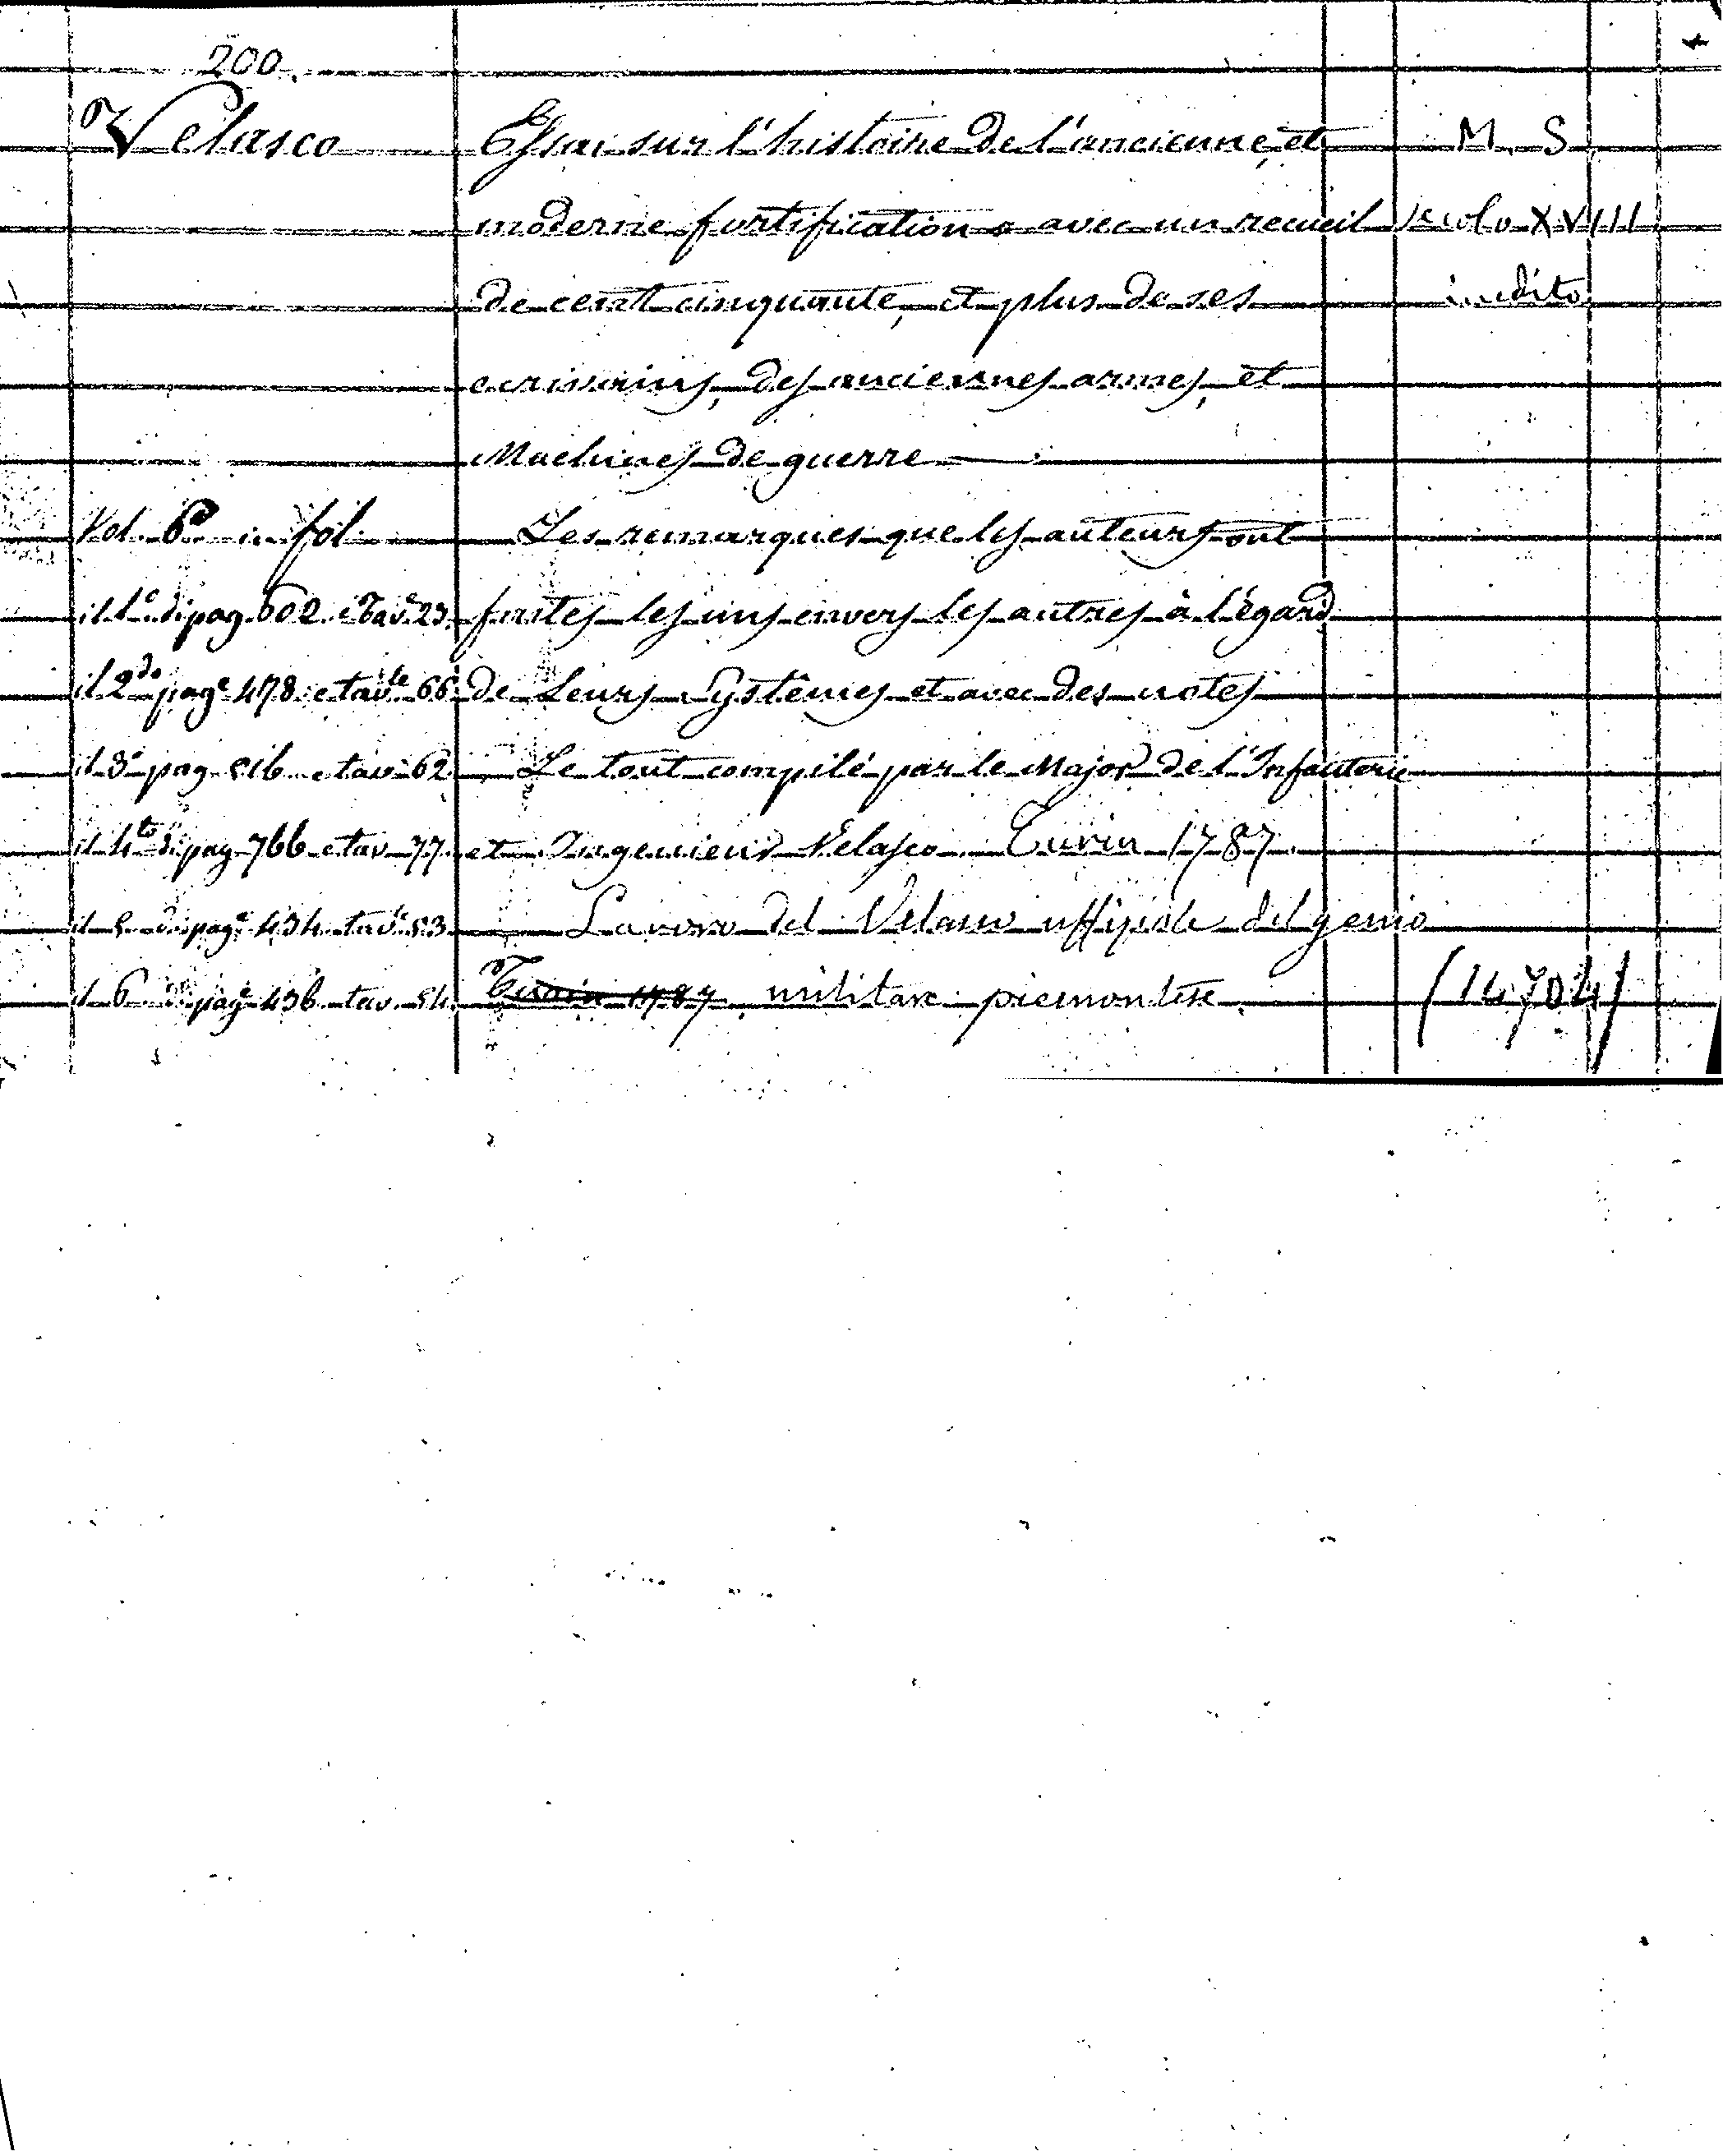 200.
Velasco
Essai sur l'histoire de l'ancienne, et
M. S.
moderne fortification avec un recueil
secolo XVIII
de cent cinquante, et plus de ses
inedito
ecrivains, des anciennes armes, et
Machines de guerre
Vol. 6 in fol.
Les remarques que les auteurs ont
il 1º di pag. 602 e Tavᵉ 23.
faites les uns envers les autres à l'égard
il 2do pagᵉ 478 e tavle 66
de Leurs Systêmes et avec des notes
il 3º pag 516 e tavᵉ 62
Le tout compilé par le Major de l'Infanterie
il 4to di pag 766 e tav 77
et Ingenieur Velasco Turin 1787.
il 5 di pagᵉ 434 tavᵉ 53
Lavoro del Velasco uffiziale del genio
il 6 di pagᵉ 436 tav. 54.
Turin 1787 militare piemontese.
(14704)